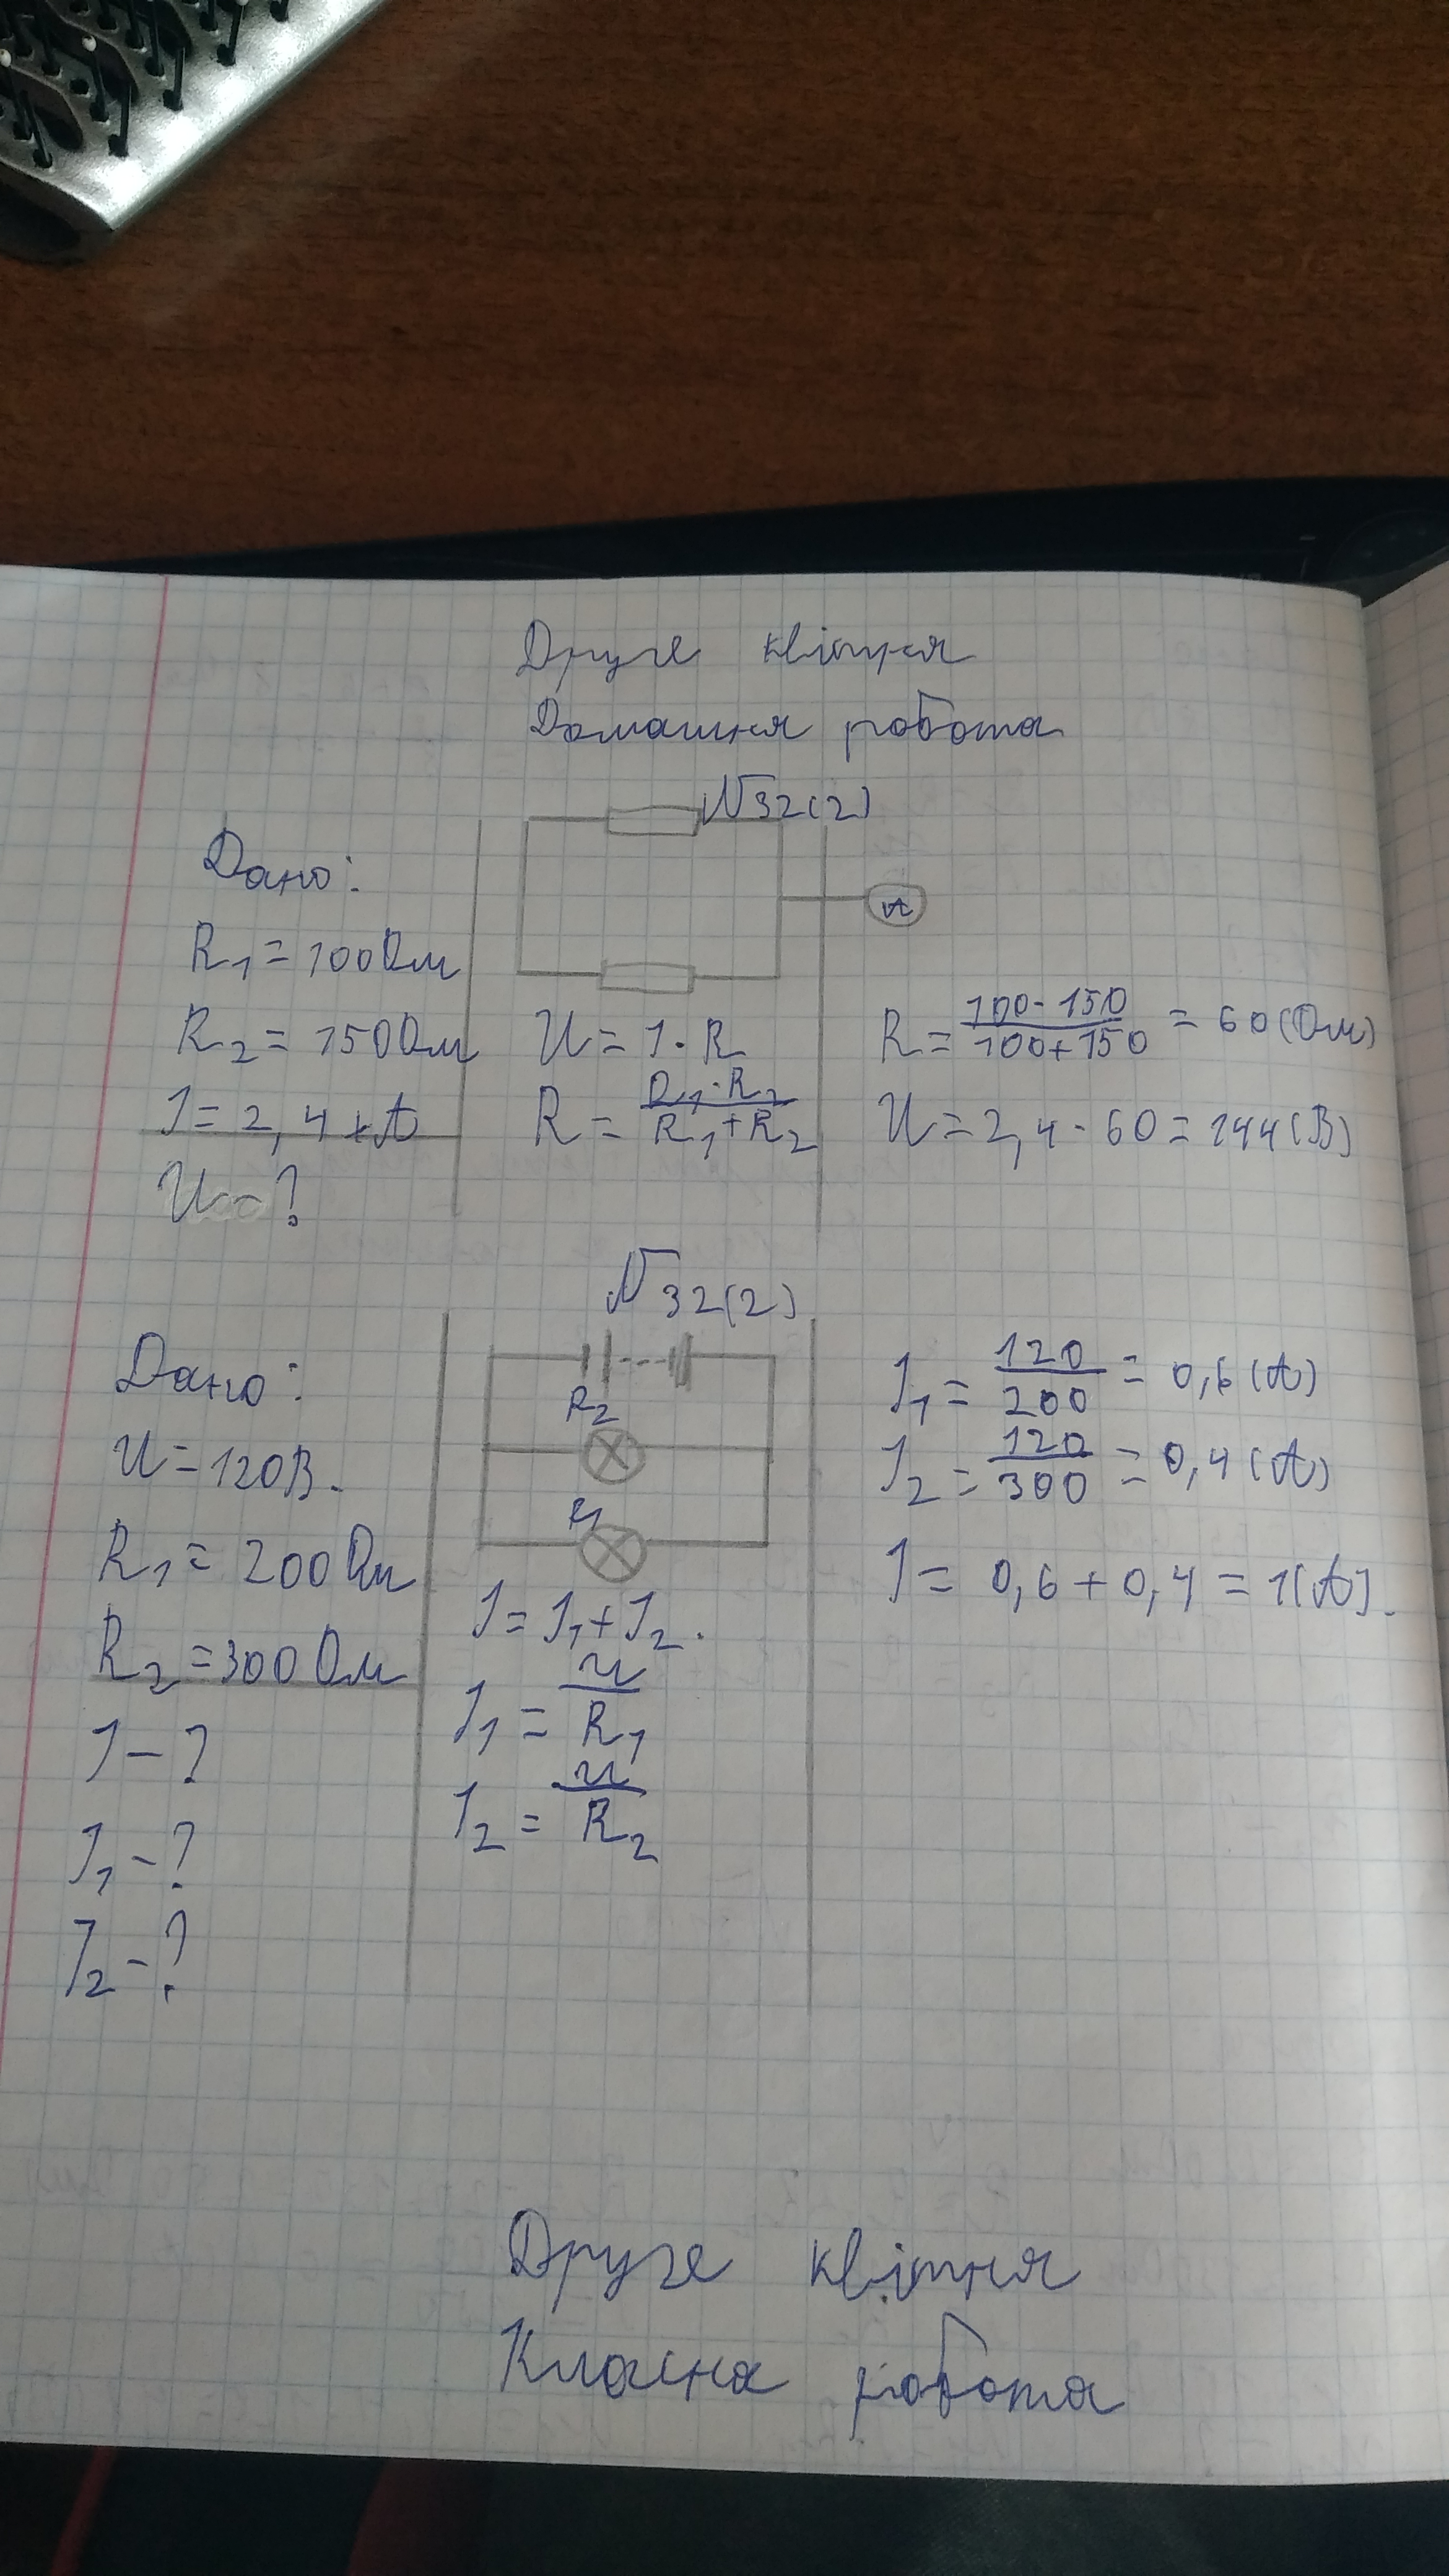 Друге квітня
Домашня робота
№32(2)
Дано:
R₁ = 100 Ом
R₂ = 150 Ом
I = 2,4 А
U - ?
A
U = I · R
R = R₁·R₂ / R₁+R₂
R = 100·150 / 100+150 = 60 (Ом)
U = 2,4 · 60 = 144 (В)
№32(2)
Дано:
U = 120В.
R₁ = 200 Ом
R₂ = 300 Ом
I - ?
I₁ - ?
I₂ - ?
R₂
R₁
I = I₁ + I₂.
I₁ = U / R₁
I₂ = U / R₂
I₁ = 120 / 200 = 0,6 (А)
I₂ = 120 / 300 = 0,4 (А)
I = 0,6 + 0,4 = 1 (А).
Друге квітня
Класна робота